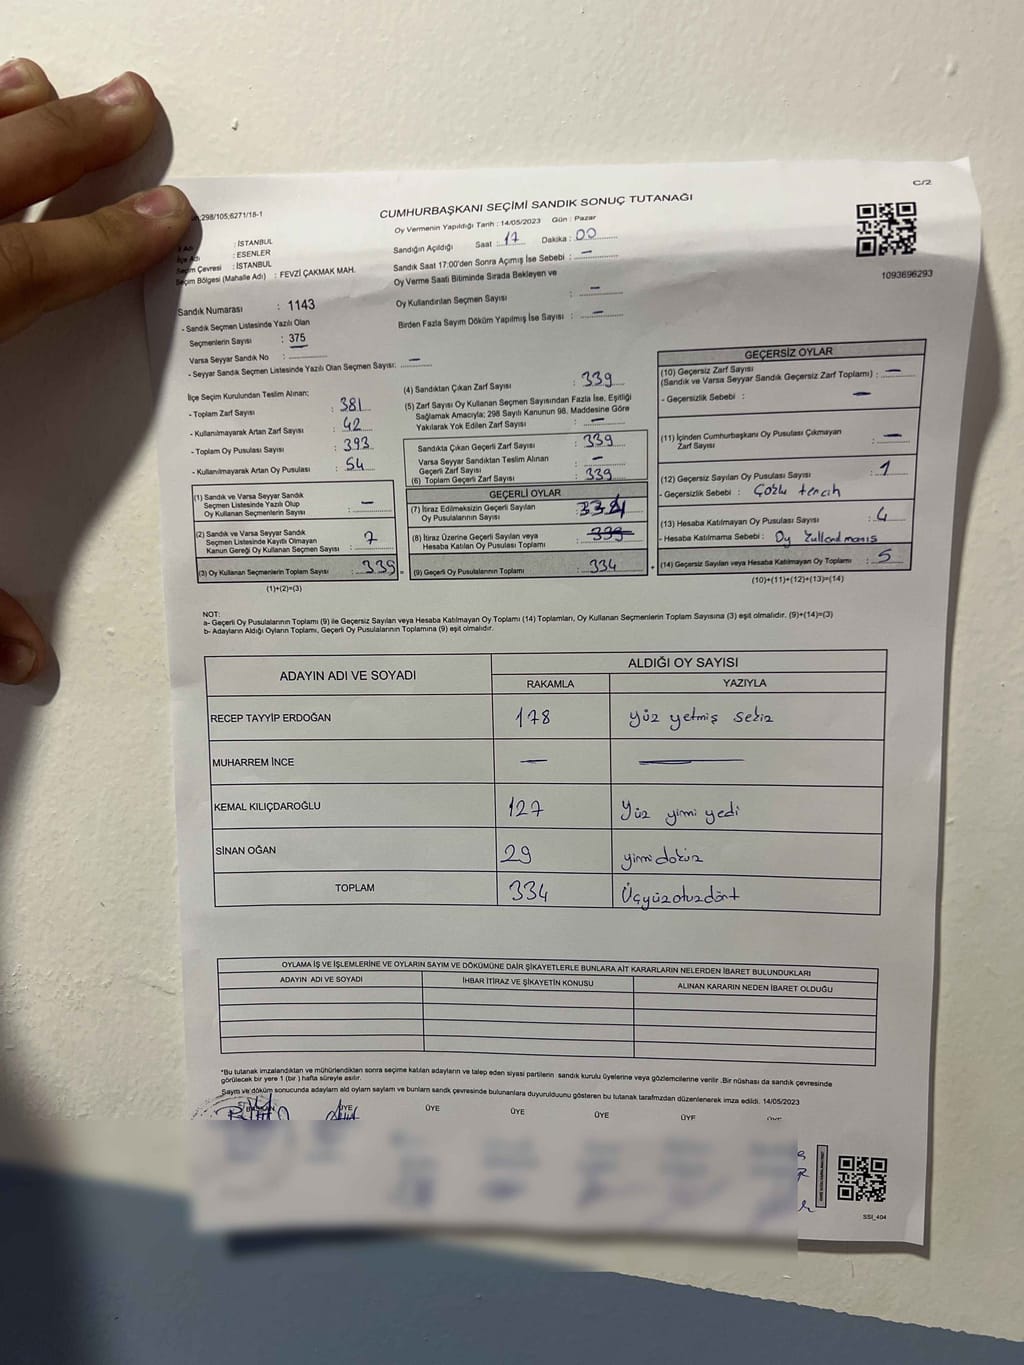 C/2
298/105;6271/18-1
CUMHURBAŞKANI SEÇİMİ SANDIK SONUÇ TUTANAĞI
Oy Vermenin Yapıldığı Tarih : 14/05/2023 Gün : Pazar
İl Adı : İSTANBUL
İlçe Adı : ESENLER
Seçim Çevresi : İSTANBUL
Seçim Bölgesi (Mahalle Adı) : FEVZİ ÇAKMAK MAH.
Sandık Numarası : 1143
- Sandık Seçmen Listesinde Yazılı Olan
Seçmenlerin Sayısı : 375
Varsa Seyyar Sandık No :
- Seyyar Sandık Seçmen Listesinde Yazılı Olan Seçmen Sayısı: —
Sandığın Açıldığı Saat : 17 Dakika : 00
Sandık Saat 17:00'den Sonra Açımış İse Sebebi : —
Oy Verme Saati Bitiminde Sırada Bekleyen ve
Oy Kullandırılan Seçmen Sayısı : —
Birden Fazla Sayım Döküm Yapılmış İse Sayısı : —
1093696293
İlçe Seçim Kurulundan Teslim Alınan;
- Toplam Zarf Sayısı : 381
- Kullanılmayarak Artan Zarf Sayısı : 42
- Toplam Oy Pusulası Sayısı : 393
- Kullanılmayarak Artan Oy Pusulası : 54
(1) Sandık ve Varsa Seyyar Sandık
Seçmen Listesinde Yazılı Olup
Oy Kullanan Seçmenlerin Sayısı : —
(2) Sandık ve Varsa Seyyar Sandık
Seçmen Listesinde Kayıtlı Olmayan
Kanun Gereği Oy Kullanan Seçmen Sayısı : 7
(3) Oy Kullanan Seçmenlerin Toplam Sayısı : 339
(1)+(2)=(3)
(4) Sandıktan Çıkan Zarf Sayısı : 339
(5) Zarf Sayısı Oy Kullanan Seçmen Sayısından Fazla İse, Eşitliği
Sağlamak Amacıyla; 298 Sayılı Kanunun 98. Maddesine Göre
Yakılarak Yok Edilen Zarf Sayısı : —
Sandıkta Çıkan Geçerli Zarf Sayısı : 339
Varsa Seyyar Sandıktan Teslim Alınan
Geçerli Zarf Sayısı : —
(6) Toplam Geçerli Zarf Sayısı : 339
GEÇERLİ OYLAR
(7) İtiraz Edilmeksizin Geçerli Sayılan
Oy Pusulalarının Sayısı : 334
(8) İtiraz Üzerine Geçerli Sayılan veya
Hesaba Katılan Oy Pusulası Toplamı : 339
(9) Geçerli Oy Pusulalarının Toplamı : 334
GEÇERSİZ OYLAR
(10) Geçersiz Zarf Sayısı
(Sandık ve Varsa Seyyar Sandık Geçersiz Zarf Toplamı) : —
- Geçersizlik Sebebi : —
(11) İçinden Cumhurbaşkanı Oy Pusulası Çıkmayan
Zarf Sayısı : —
(12) Geçersiz Sayılan Oy Pusulası Sayısı : 1
- Geçersizlik Sebebi : Çoklu tercih
(13) Hesaba Katılmayan Oy Pusulası Sayısı : 4
- Hesaba Katılmama Sebebi : Oy kullanılmamış
(14) Geçersiz Sayılan veya Hesaba Katılmayan Oy Toplamı : 5
(10)+(11)+(12)+(13)=(14)
NOT:
a- Geçerli Oy Pusulasının Toplamı (9) ile Geçersiz Sayılan veya Hesaba Katılmayan Oy Toplamı (14) Toplamları, Oy Kullanan Seçmenlerin Toplam Sayısına (3) eşit olmalıdır. (9)+(14)=(3)
b- Adayların Aldığı Oyların Toplamı, Geçerli Oy Pusulalarının Toplamına (9) eşit olmalıdır.
ADAYIN ADI VE SOYADI ALDIĞI OY SAYISI
RAKAMLA YAZIYLA
RECEP TAYYİP ERDOĞAN 178 yüz yetmiş sekiz
MUHARREM İNCE —
KEMAL KILIÇDAROĞLU 127 Yüz yirmi yedi
SİNAN OĞAN 29 yirmi dokuz
TOPLAM 334 Üçyüzotuzdört
OYLAMA İŞ VE İŞLEMLERİNE VE OYLARIN SAYIM VE DÖKÜMÜNE DAİR ŞİKAYETLERLE BUNLARA AİT KARARLARIN NELERDEN İBARET BULUNDUKLARI
ADAYIN ADI VE SOYADI İHBAR İTİRAZ VE ŞİKAYETİN KONUSU ALINAN KARARIN NEDEN İBARET OLDUĞU
*Bu tutanak imzalandıktan ve mühürlendikten sonra seçime katılan adayların ve talep eden siyasi partilerin sandık kurulu üyelerine veya gözlemcilerine verilir .Bir nüshası da sandık çevresinde
görülecek bir yere 1 (bir ) hafta süreyle asılır.
Sayım ve döküm sonucunda adayların aldığı oyların sayıları ve bunların sandık çevresinde bulunanlara duyurulduğunu gösteren bu tutanak tarafımızdan düzenlenerek imza edildi. 14/05/2023
BAŞKAN ÜYE ÜYE ÜYE ÜYE ÜYE ÜYE
SSI_404